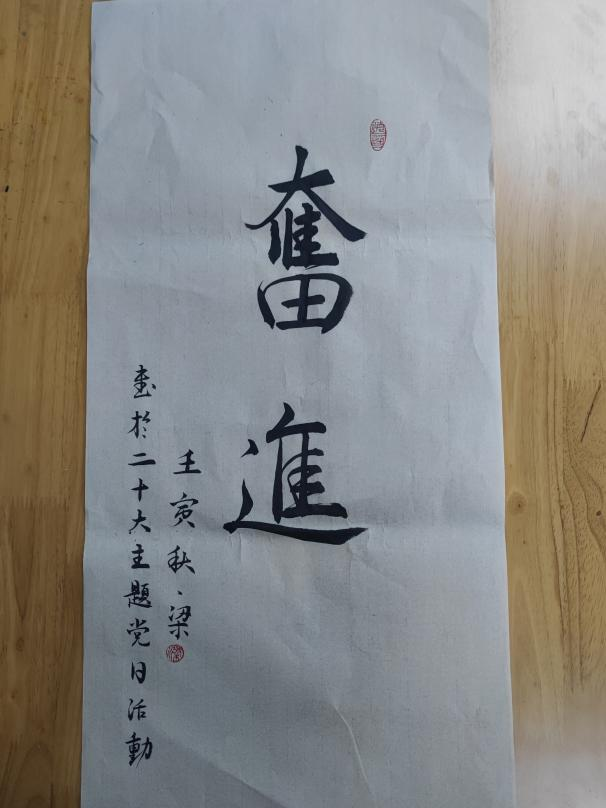 奮進
壬寅秋、梁
書於二十大主題党日活動